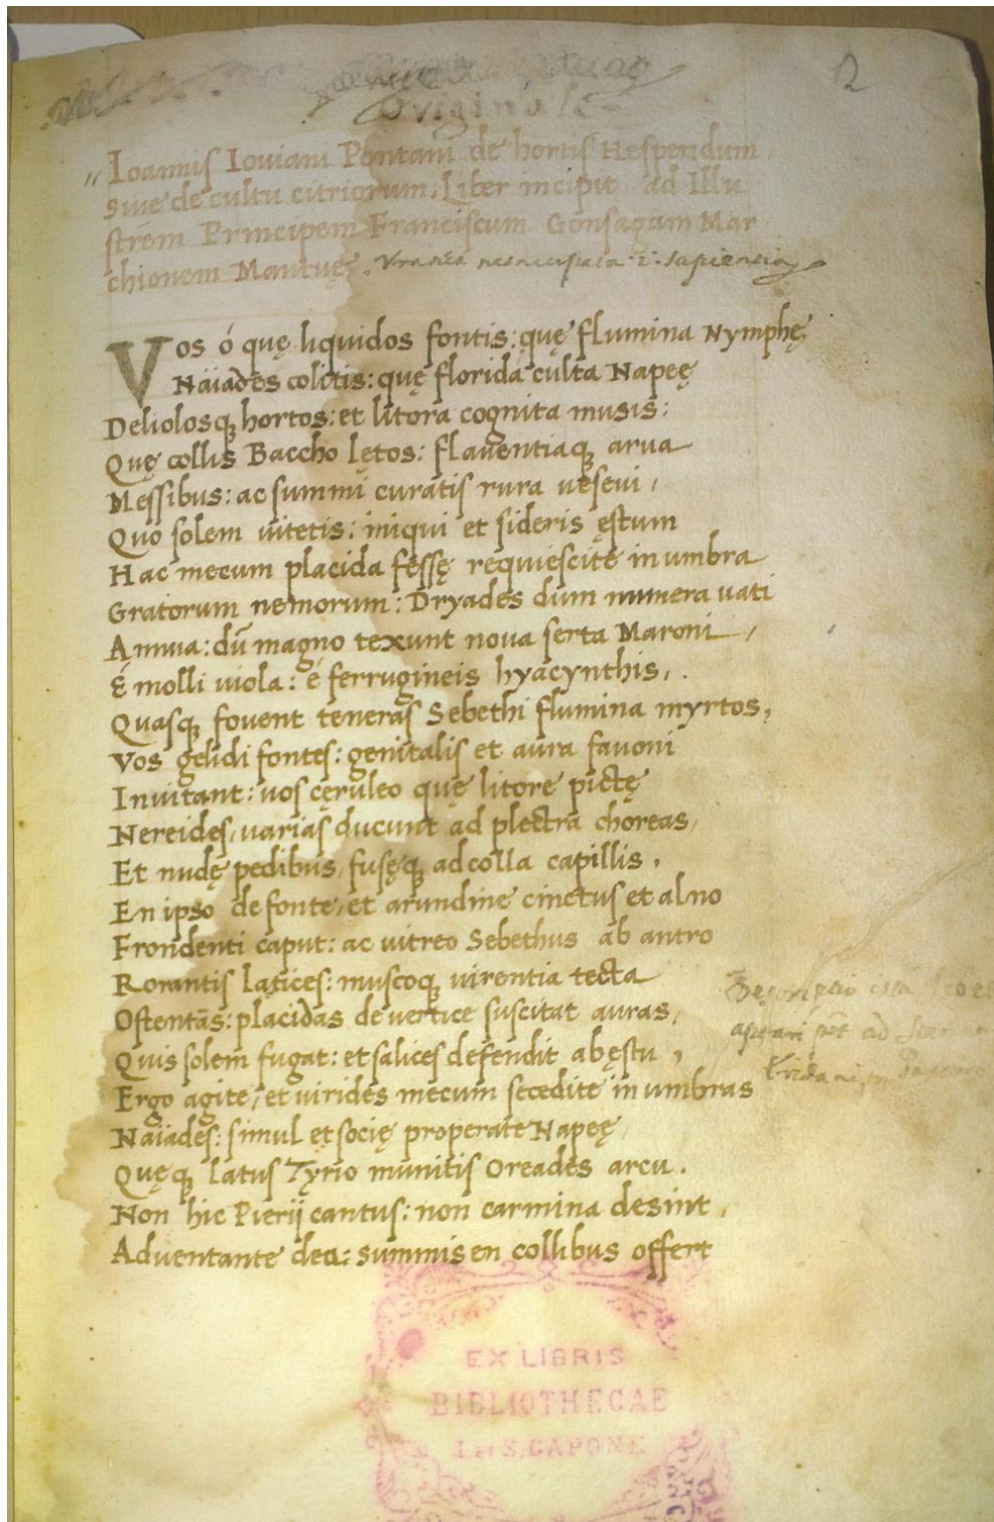 2
Originale
Ioannis Ioviani Pontani de hortis Hesperidum
sive de cultu citriorum: Liber incipit ad Illu
strem Principem Franciscum Gonsagam Mar
chionem Mantuę.
Vos ó quę liquidos fontis: quę flumina Nymphę
Naiades colitis: quę florida culta Napeę
Deliolosq hortos: et litora cognita musis:
Quę collis Baccho lętos: flaventiaq arva
Messibus: ac summi curatis rura vesevi,
Quo solem vitetis: iniqui et sideris ęstum
Hac mecum placida fessę requiescite in umbra
Gratorum nemorum: Dryades dum munera vati
Annua: dũ magno texunt nova serta Maroni,
É molli viola: é ferrugineis hyacynthis,
Quasq fovent teneras Sebethi flumina myrtos,
Vos gelidi fontes: genitalis et aura favoni
Invitant: vos cęruleo quę litore pictę
Nereides, varias ducunt ad plectra choreas,
Et nudę pedibus, fusęq ad colla capillis.
En ipso de fonte, et arundine cinctus et alno
Frondenti caput: ac vitreo Sebethus ab antro
Rorantis latices: muscoq virentia tecta
Ostentãs: placidas de vertice suscitat auras,
Quis solem fugat: et salices defendit ab ęstu,
Ergo agite, et virides mecum secedite in umbras
Naiades: simul et socię properate Napeę
Quęq latus Tyrio munitis Oreades arcu.
Non hic Pierij cantus: non carmina desint,
Adventante dea: summis en collibus offert
EX LIBRIS
BIBLIOTHECAE
S. CAPONE